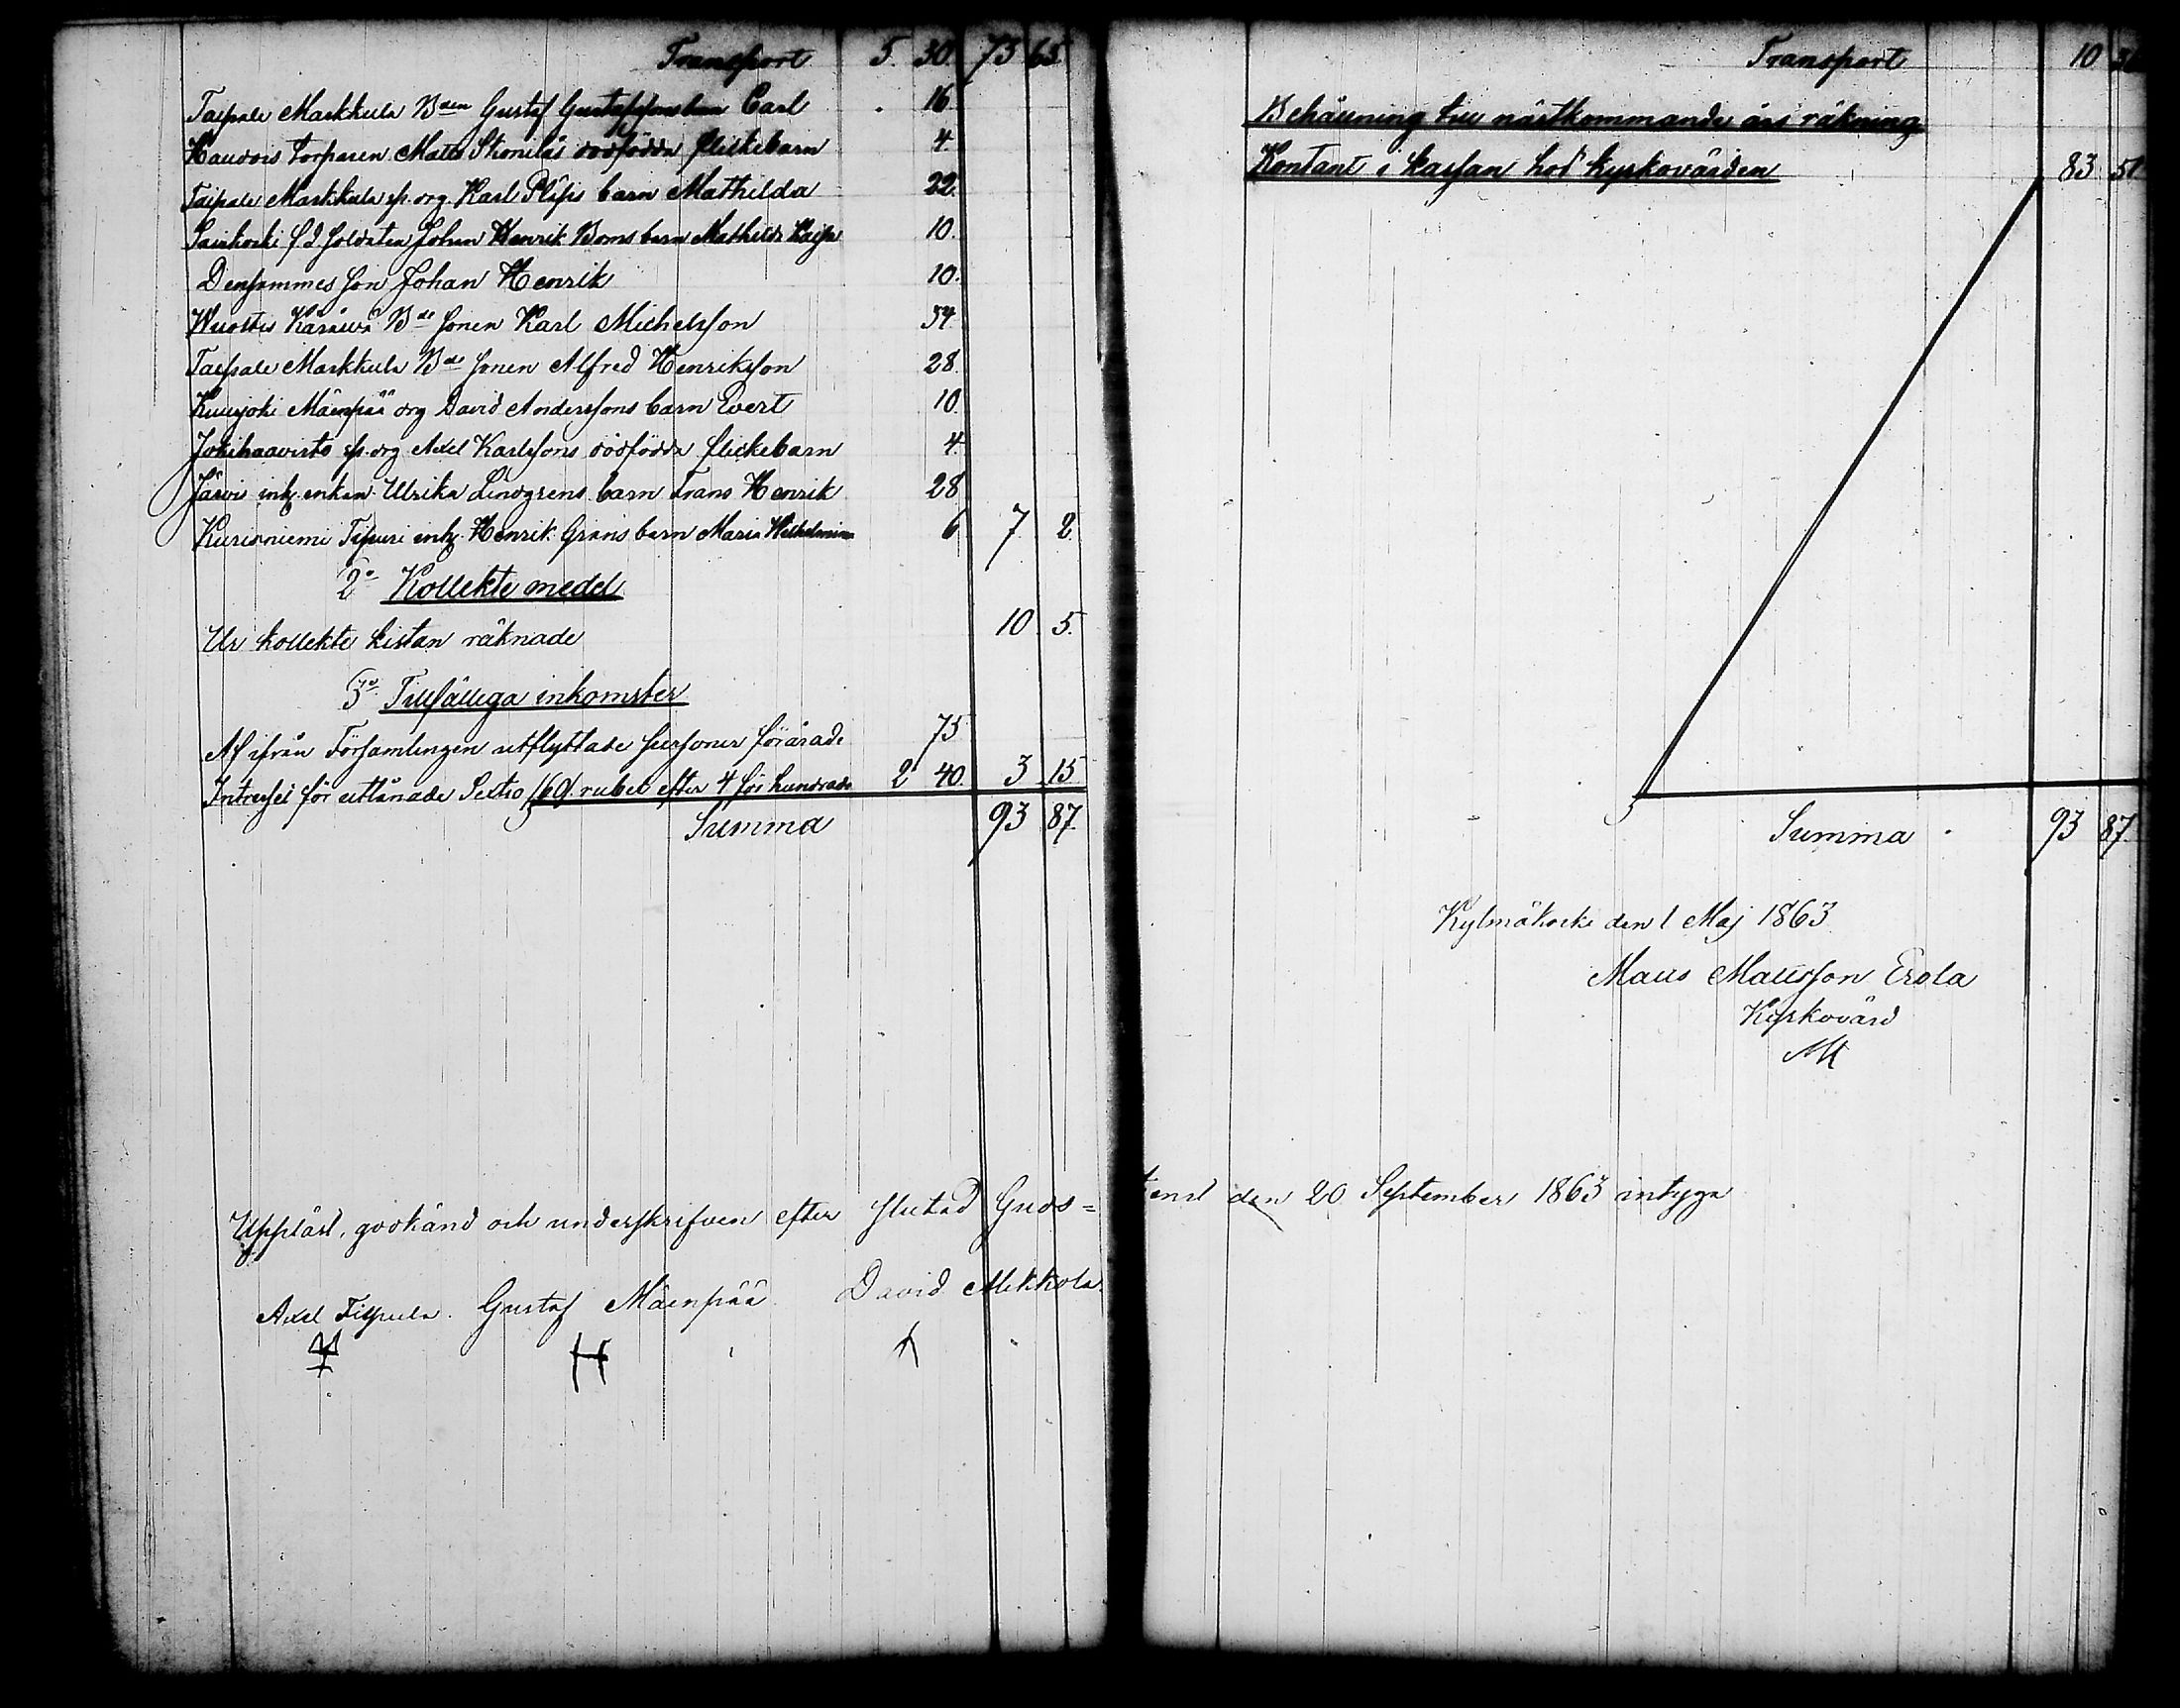 Transport 5. 30. 73 65
Taipale Markkula Bden Gustaf Gustafssons barn Carl 16
Haudois torparen Matts Skonilas dödfödda flickebarn 4
Taipale Markkula sp. org. Karl barn Mathilda 22.
f.d. soldaten Johan Henrik Boms barn Mathilda 10.
Densammes son Johan Henrik 10.
Bde sonen Karl Michelsson 34
Taipale Markkula Bde sonen Alfred Henriksson 28.
Kuujoki Mäenpää drg David Anderssons barn Evert 10.
Jokihaavisto sp. drg Axel Karlssons dödfödda flickebarn 4.
Järvis inh. enkan Ulrika Lindgrens barn Frans Henrik 28
Kurisniemi inh. Henrik Gräns barn Maria Wilhelmina 6 7 2
2o Kollekte medel
Ur kollekte kistan räknade 10. 5.
3o Tillfälliga inkomster
Af ifrån Församlingen utflyttade personer förärade 75
Intresse för utlånade Sextio /60/ rubel efter 4 för hundrade 2 40. 3 15
Summa 93 87
Uppläst, godkänd och underskrifven efter slutad Guds=
Axel Gustaf Mäenpää David Mikkola
Transport 10 36
Behållning till nästkommande års räkning
Kontant i kassan hos kyrkovärden 83 51
Summa 93 87
Kylmäkoski den 1 Maj 1863
Matts Mattsson Erola
Kyrkovärd
tenst den 20 September 1863 intyga